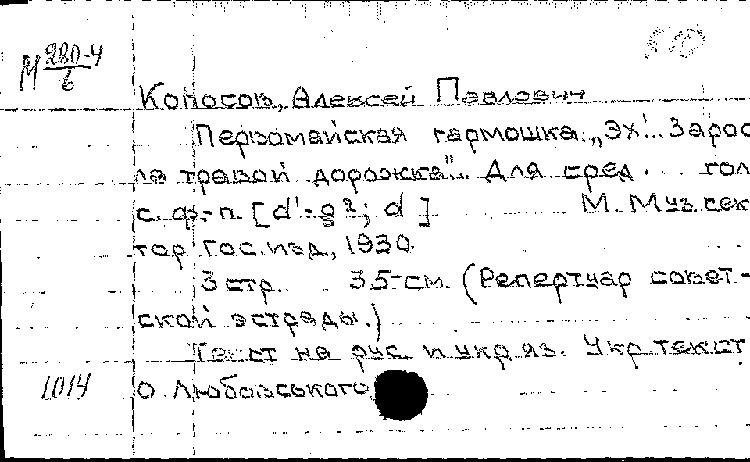 М 280-4
6
Колосов, Алексей Павлович
Первомайская гармошка. „Эх!.. Зарос
ла травой дорожка". Для сред. гол
с. ф-п. [d'-g²; d] М. Муз. сек
тор Гос. изд., 1930.
3 стр. 35 см. (Репертуар совет-
ской эстрады.)
Текст на рус и укр яз. Укр текст
1014 О Любовського